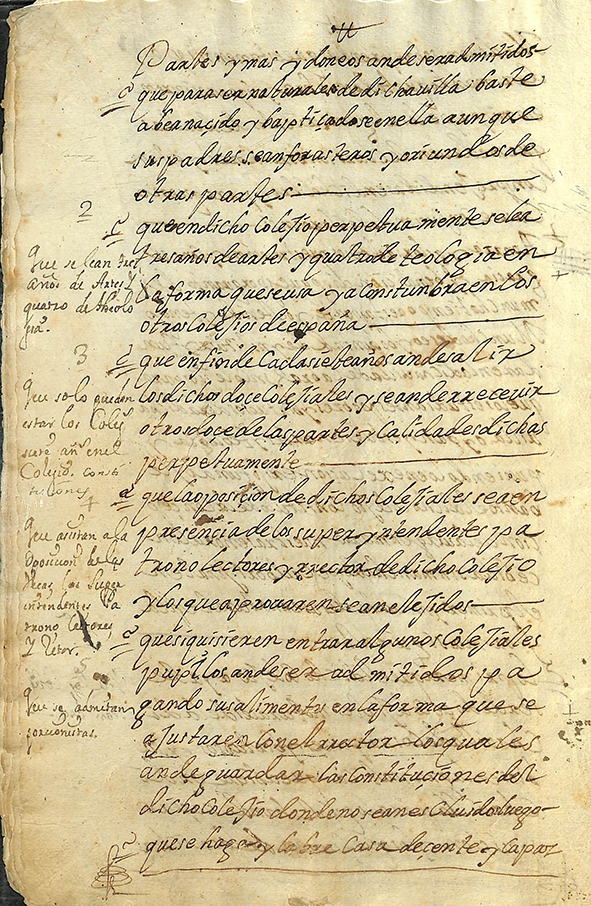 Partes y mas ydoneos an de ser admitidos
que para ser naturales de dicha villa baste
aber nacido y baptiçadose en ella aunque
sus padres sean forasteros y oriundos de
otras partes
2
que en dicho Colejio perpetuamente se lea
tres años de artes y quatro de teologia en
la forma que se usa y a constunbra en los
otros Colejios de españa
que se lean tres
años de Artes y
quatro de theolo
gia.
3
que en fin de Cada siete años an de salir
los dichos doçe Colejiales y se an de rrecevir
otros doçe de las partes y Calidades dichas
perpetuamente
Que solo pueden
estar los Coles
siete añs en el
Colejio. consti
tuciones
que la oposiçion de dichos Colejiales sea en
presençia de los superyntendentes pa
trono lectores y rrector de dicho Colejio
y los que aprovaren sean elejidos
Que asistan a la
oposicion de las
Vecas los Super
intendentes Pa
trono Letores,
Y Retor.
que si quisieren entrar algunos Colejiales
pupilos an de ser admitidos pa
gando sus alimentos en la forma que se
ajustaren con el rrector los quales
an de guardar las Constituçiones del
dicho Colejio donde no sean esCluidos luego
Que se admitan
porcionistas.
que se haga y labre Casa decente y Capaz